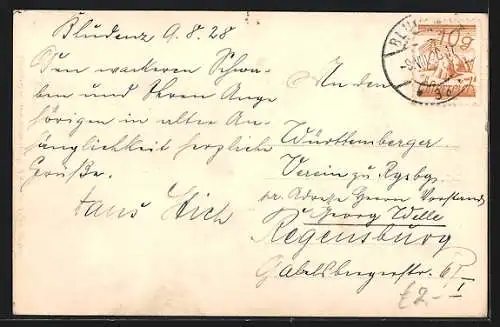 Bludenz 9.8.28
Den wackeren Schwa-
ben und Ihren Ange
hörigen in alter An-
hänglichkeit herzliche
Grüße.
Hans Eich
An den
Württemberger
Verein zu Rgsbg.
pr. Adresse Herrn Vorstand
Georg Welle
Regensburg
Gabelsbergerstr. 6 I/I
£2-
10g
BLU